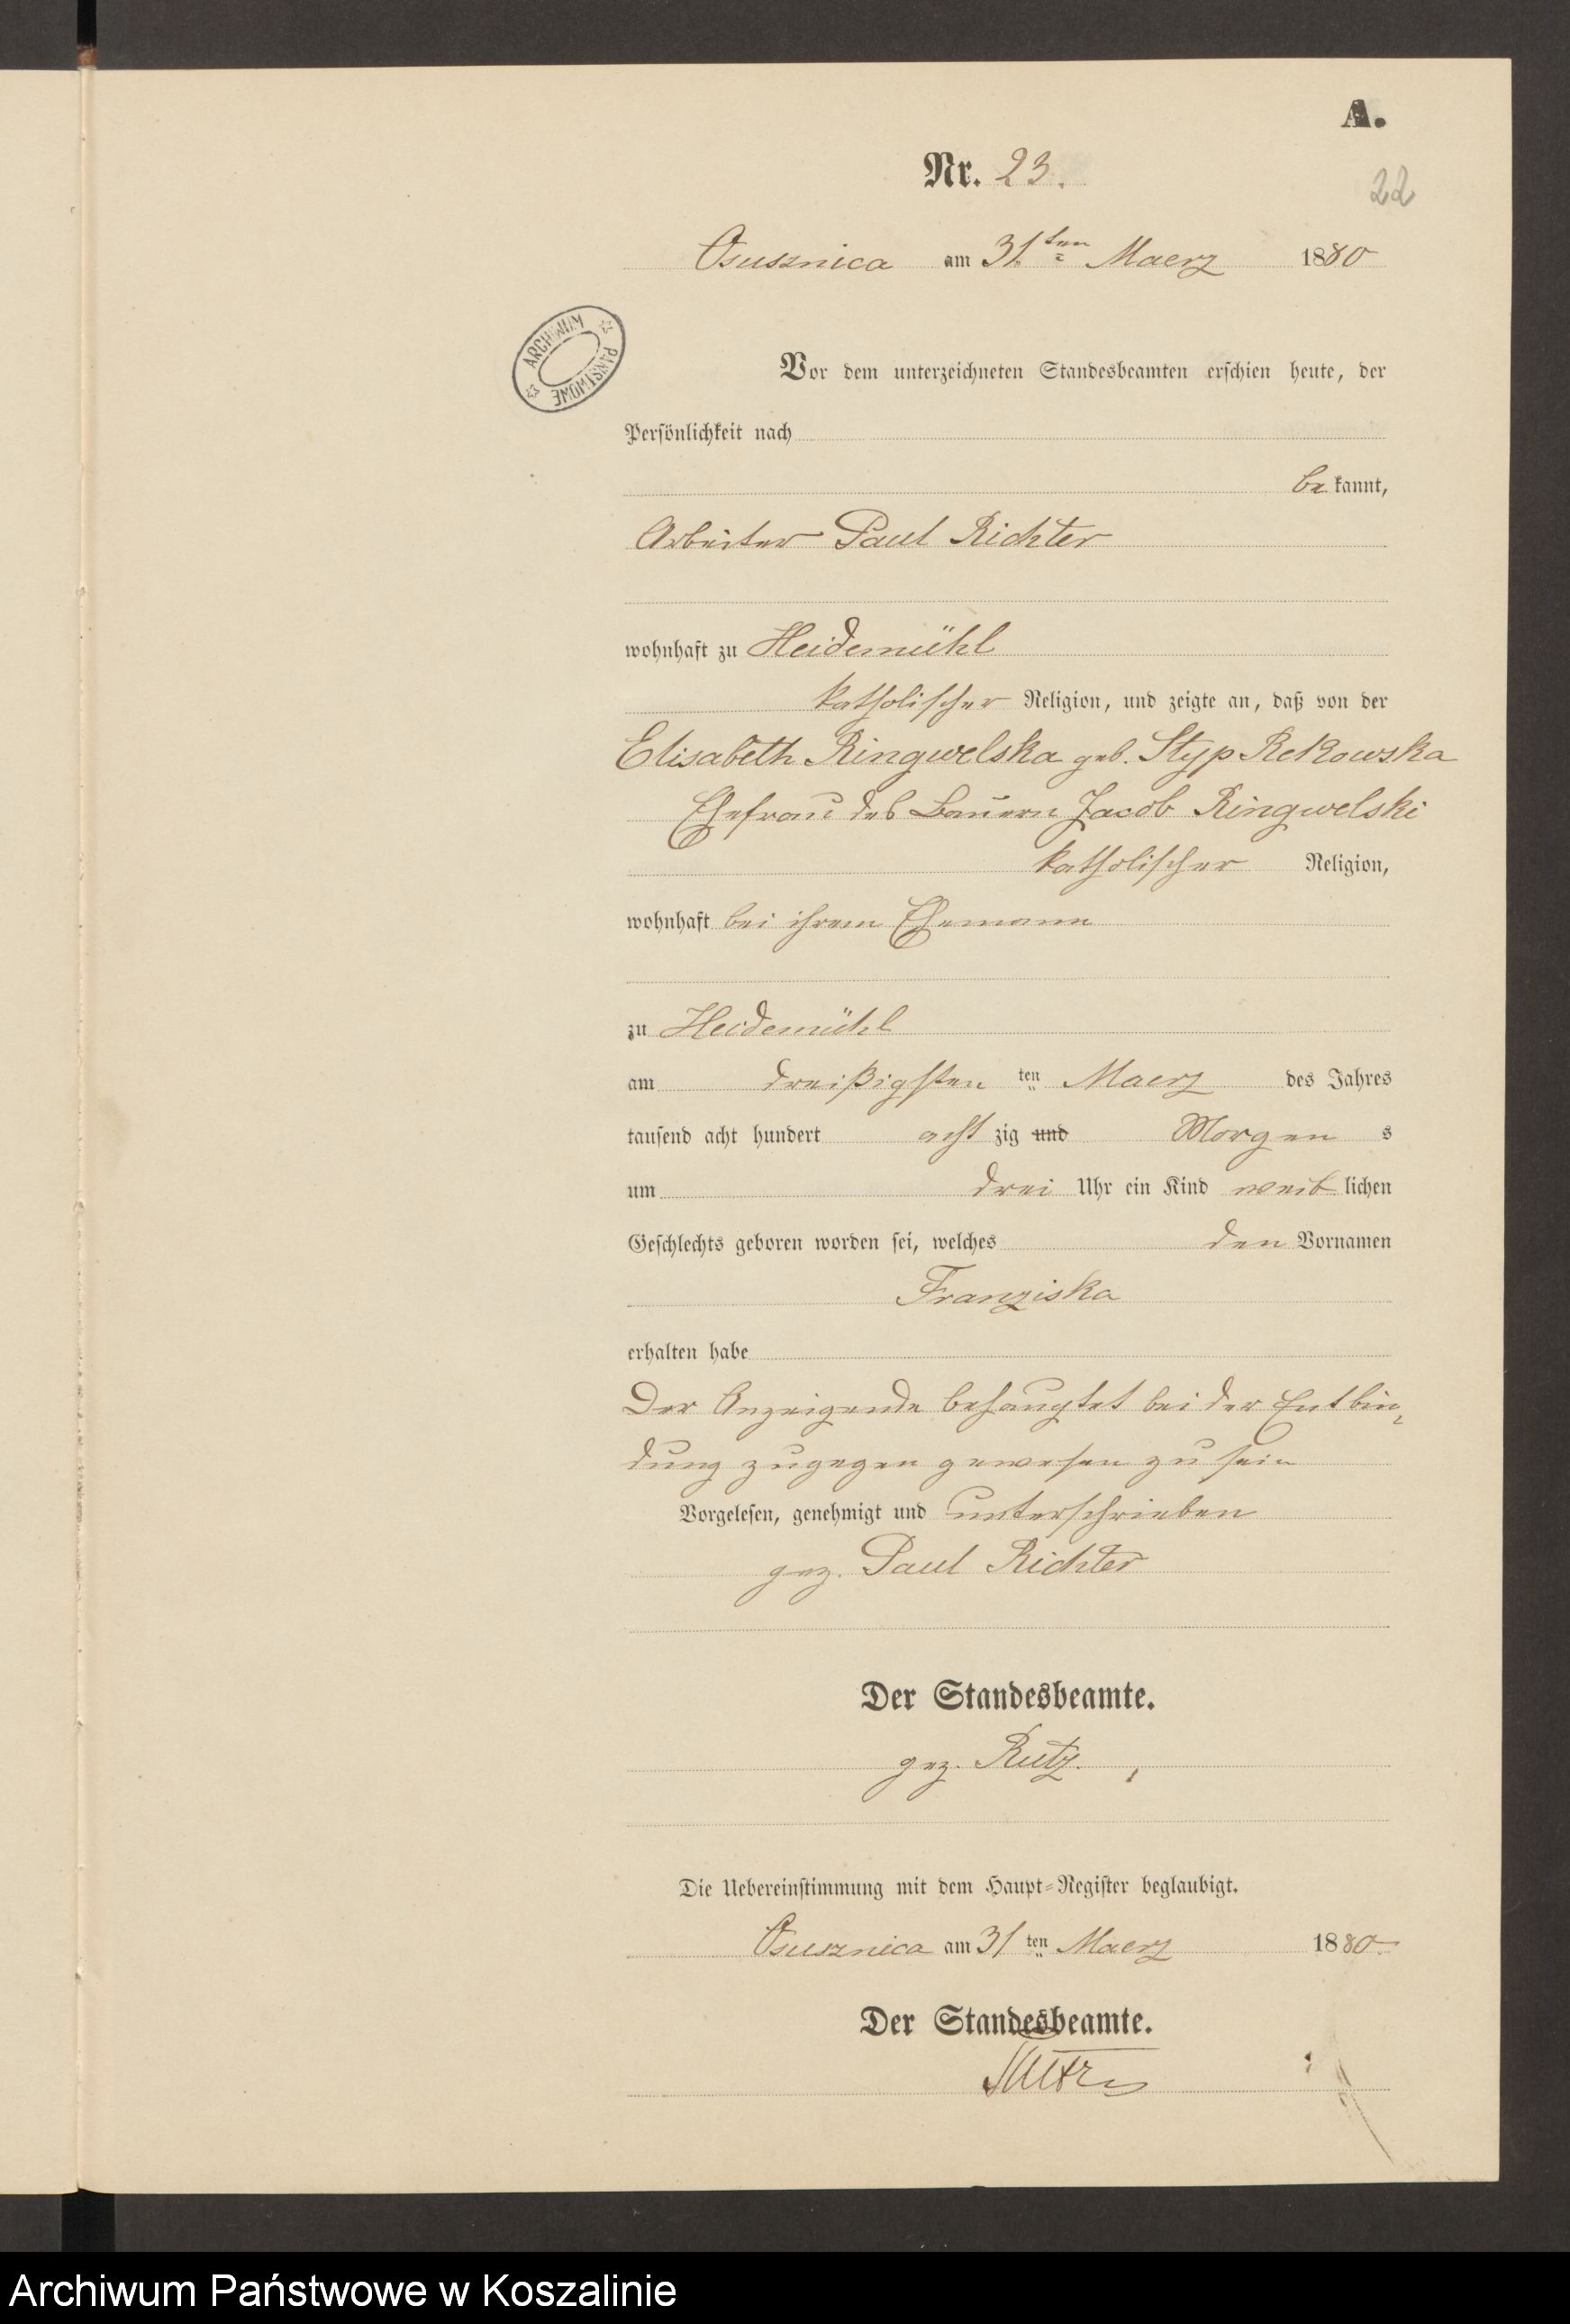 A.
Nr. 23.
22
Osusznica am 31.ten Maerz 1880
ARCHIWUM PAŃSTWOWE
Vor dem unterzeichneten Standesbeamten erschien heute, der
Persönlichkeit nach
be kannt,
Arbeiter Paul Richter
wohnhaft zu Heidemühl
katholischer Religion, und zeigte an, daß von der
Elisabeth Ringwelska geb. Styp Rekowska
Ehefrau des Bauern Jacob Ringwelski
katholischer Religion,
wohnhaft bei ihrem Ehemann
zu Heidemühl
am dreißigsten ten Maerz des Jahres
tausend acht hundert acht zig und Morgen s
um drei Uhr ein Kind weib lichen
Geschlechts geboren worden sei, welches den Vornamen
Franziska
erhalten habe
Der Anzeigende behauptet bei der Entbin,
dung zugegen gewesen zu sein
Vorgelesen, genehmigt und unterschrieben
gez. Paul Richter
Der Standesbeamte.
gez. Rutz.
Die Uebereinstimmung mit dem Haupt=Register beglaubigt.
Osusznica am 31 ten Maerz 1880.
Der Standesbeamte.
Rutz
Archiwum Państwowe w Koszalinie